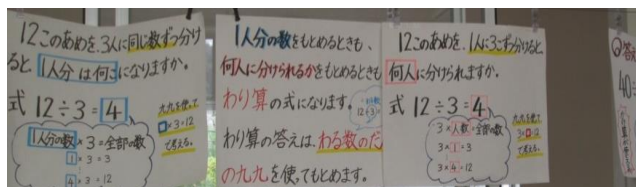 12このあめを、3人に同じ数ずつ分け
ると1人分は何こになりますか。
式 12÷3=4
九九を使って
□×3=12
で考える。
1人分の数×3=全部の数
1×3=3
4×3=12
1人分の数をもとめるときも、
何人に分けられるかをもとめるときも
わり算の式になります。
12÷3=
わり算の答えは、わる数のだ
の九九を使ってもとめます。
12このあめを、1人に3こずつ分けると、
何人に分けられますか。
式 12÷3=4
九九を使って
3×□=12
で考える。
3×人数=全部の数
3×1=3
3×4=12
答え
40=